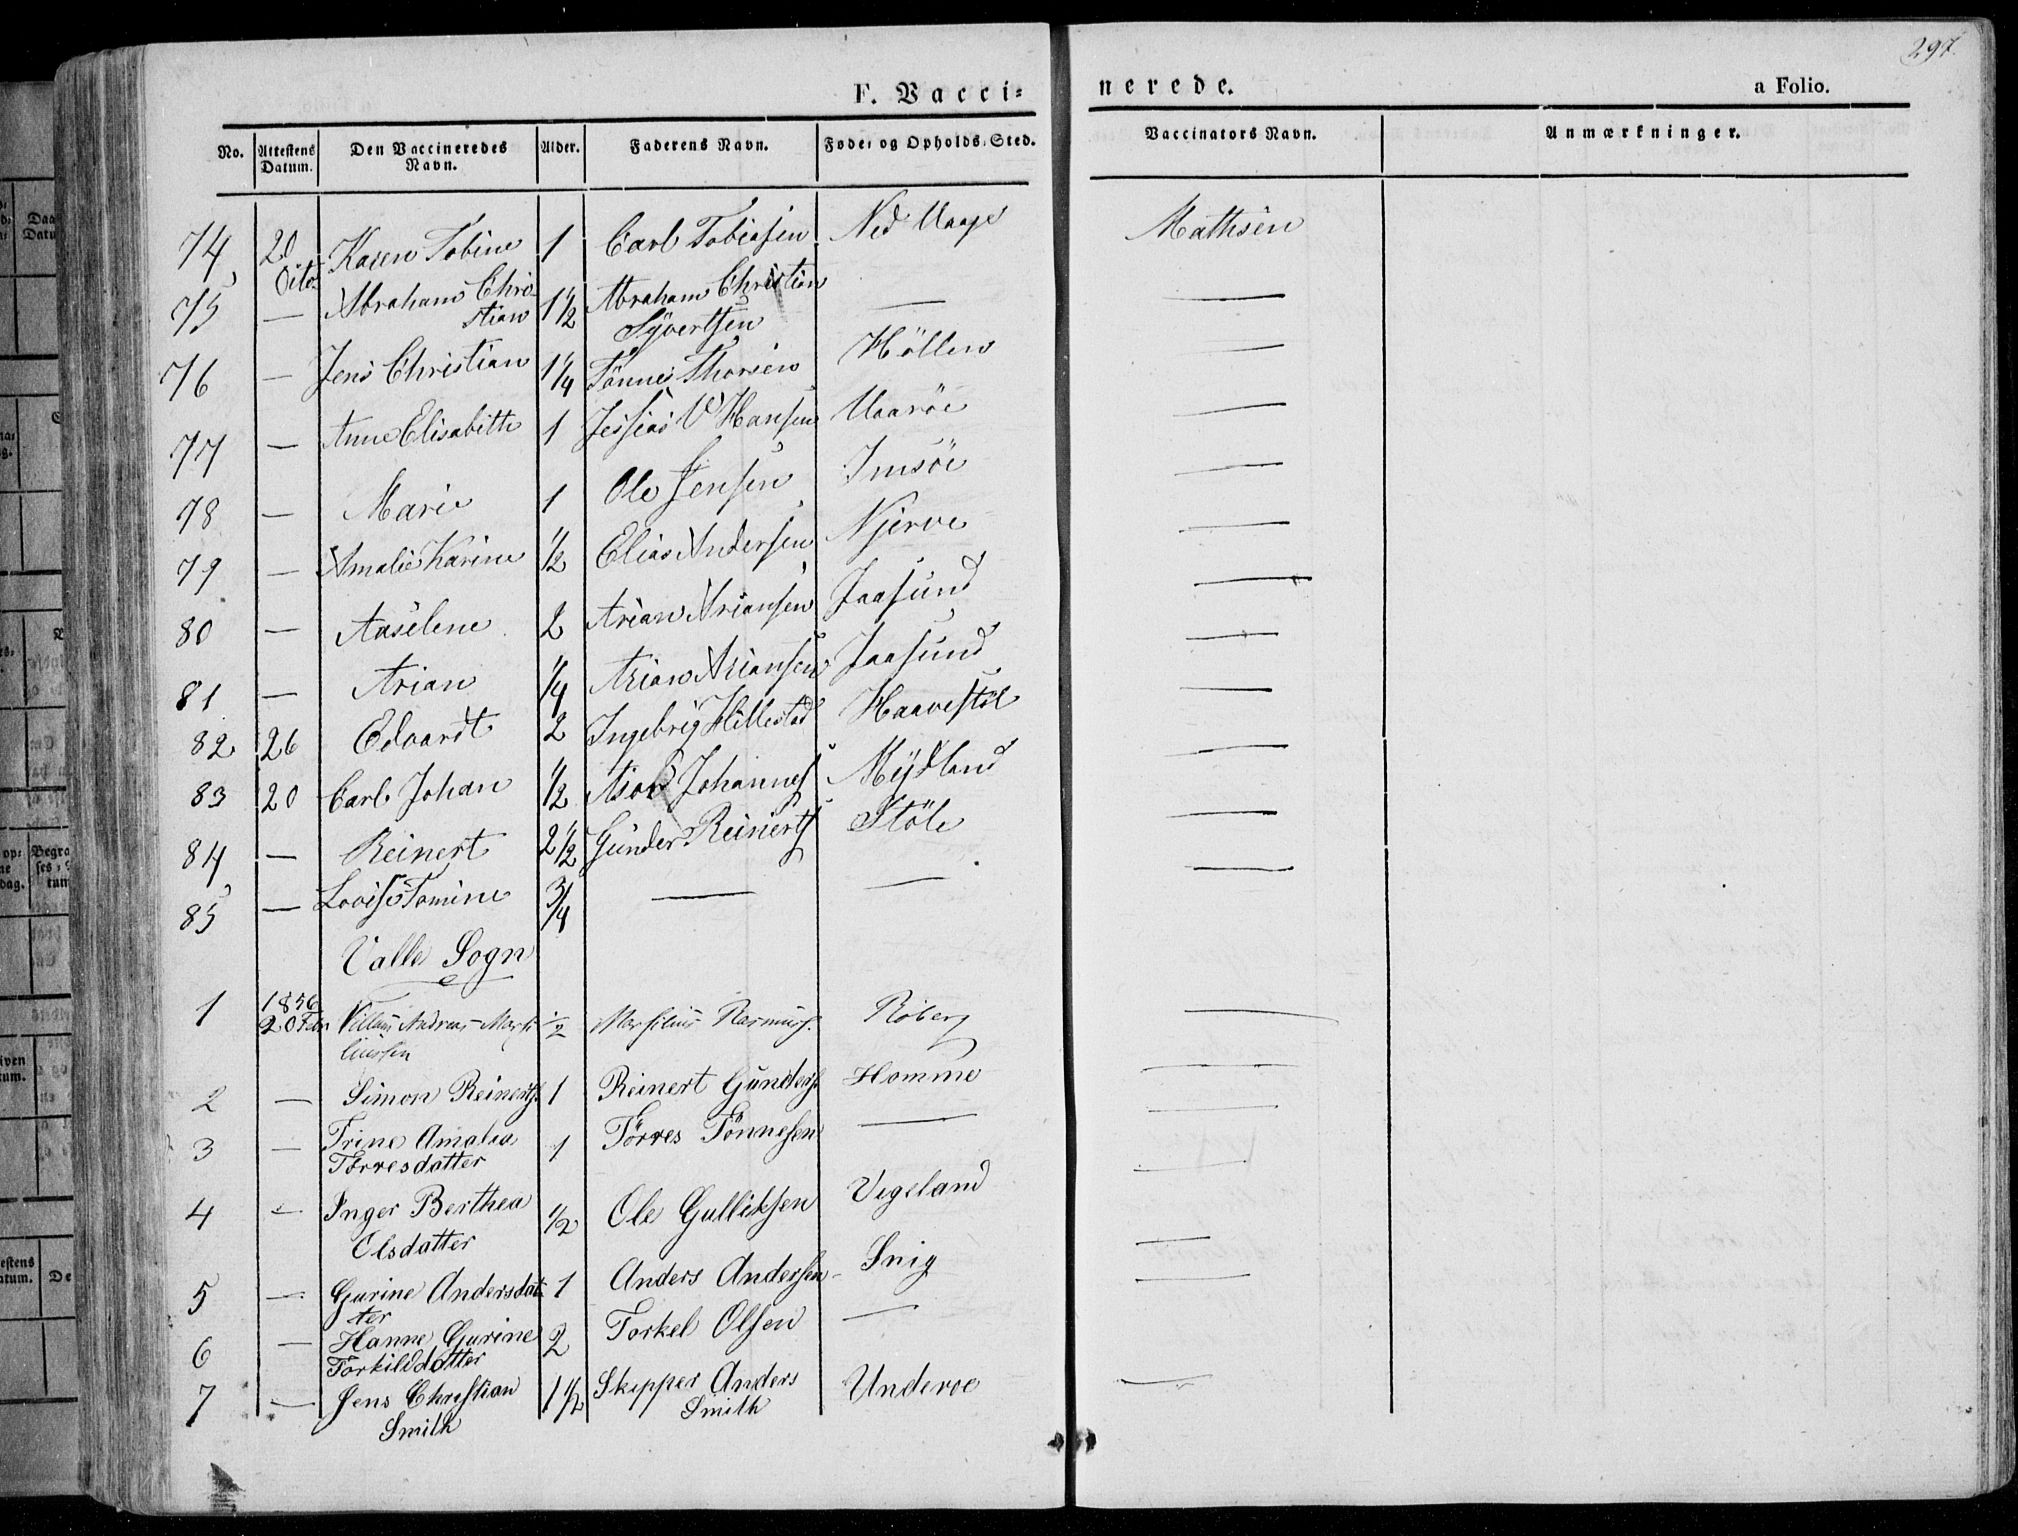 297.
F. Vacci-
nerede.
a Folio.
No. Attestens Datum. Den Vaccineredes Navn. Alder. Faderens Navn. Føde- og Opholds-Sted. Vaccinators Navn. Anmærkninger.
74, 20 Octo Karen Tobine 1 Carl Tobiasen Ned Vaage Mathisen
75 — Abraham Chri- 1 1/2 Abraham Christian — —
stian Syvertsen
76 — Jens Christian 1 1/4 Tönnes Thorsen Höllen —
77 — Anne Elisabeth 1 Jessias V Hansen Uaaröe —
78 — Marie 1 Ole Jensen Imsöe —
79 — Amalie Karine 1/2 Elias Andersen Njerve —
80 — Aaselene 2 Arian Ariansen Jaasund —
81 — Arian 1/4 Arian Ariansen Jaasund —
82 26 Edvardt 2 Ingebrig Hillestad Haavestöl —
83 20 Carl Johan 1/2 Johannes Mydland —
84 — Reinert 2 1/2 Gunder Reiherts Stöle —
85 — Lovise Tomine 3/4 — — —
Valle Sogn
1 1856 20 Febr Villau Andreas Marsi- 1/2 Marsilius Rasmus. Röberg —
liussen
2 — Simon Reinerts. 1 Reinert Gunders. Homme —
3 — Trine Amalia 1 Törres Tönnesen — —
Torresdatter
4 — Inger Berthea 1/2 Ole Gulliksen Vigeland —
Olsdatter
5 — Gurine Andersdat- 1 Anders Andersen Snig —
ter
6 — Hanne Gurine 2 Torkel Olsen — —
Torkildsdatter
7 — Jens Christian 1 1/2 Skipper Anders Underöe —
Smith Smith